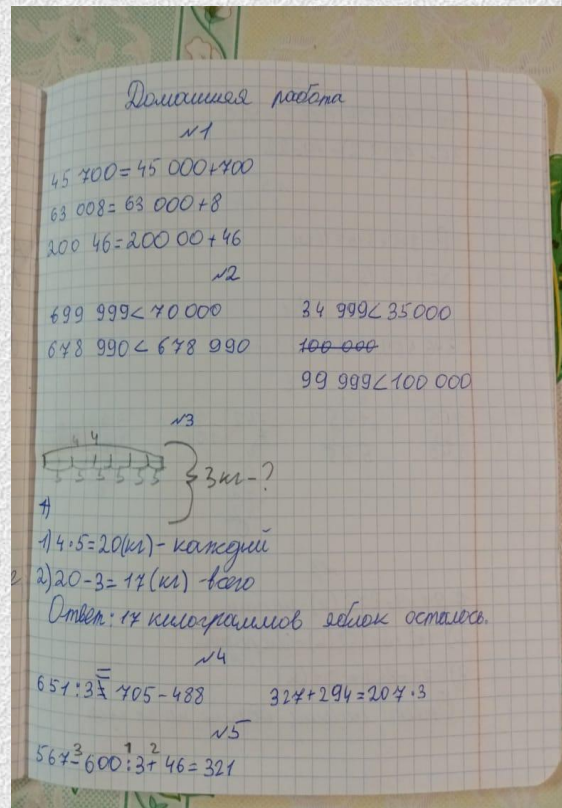 Домашняя работа
№1
45 700 = 45 000 + 700
63 008 = 63 000 + 8
200 46 = 200 00 + 46
№2
699 999 < 70 000 34 999 < 35000
678 990 < 678 990 100 000
99 999 < 100 000
№3
4 4
5 5 5 5 5 5 3 кг - ?
1)
1) 4 · 5 = 20 (кг) - каждий
2) 20 - 3 = 17 (кг) - всего
Ответ: 17 килограммов яблок осталось.
№4
651 : 3 = 705 - 488 327 + 294 = 207 · 3
№5
3 1 2
567 - 600 : 3 + 46 = 321